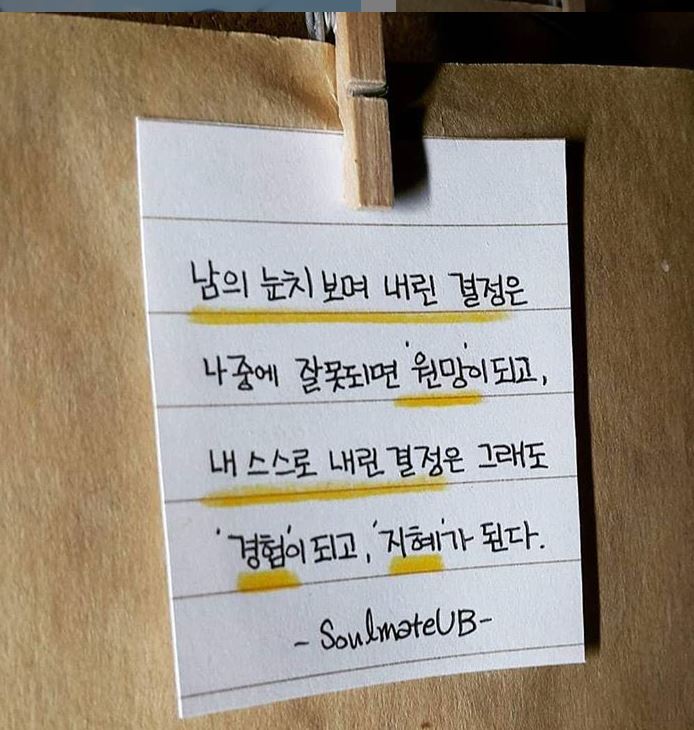 남의 눈치 보며 내린 결정은
나중에 잘못되면 '원망'이 되고,
내 스스로 내린 결정은 그래도
'경험'이 되고, '지혜'가 된다.
- SoulmateUB-